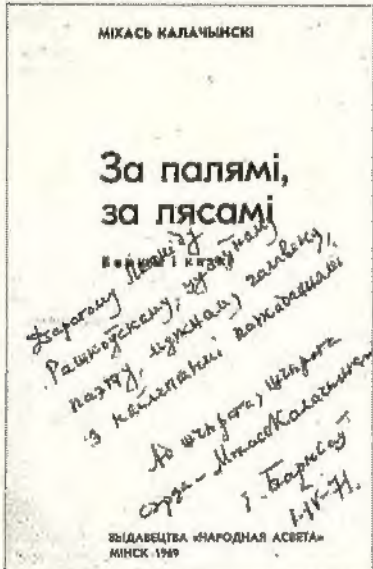 МІХАСЬ КАЛАЧЫНСКІ
За палямі,
за лясамі
Байкі і казкі
Дарагому Леаніду
Рашкоўскаму, цудоўнаму
паэту, мужнаму чалавеку,
з найлепшымі пажаданнямі
Ад шчырага, шчырага
сэрца – Міхась Калачынскі
г. Барысаў
1-IV-71.
ВЫДАВЕЦТВА «НАРОДНАЯ АСВЕТА»
МІНСК 1969